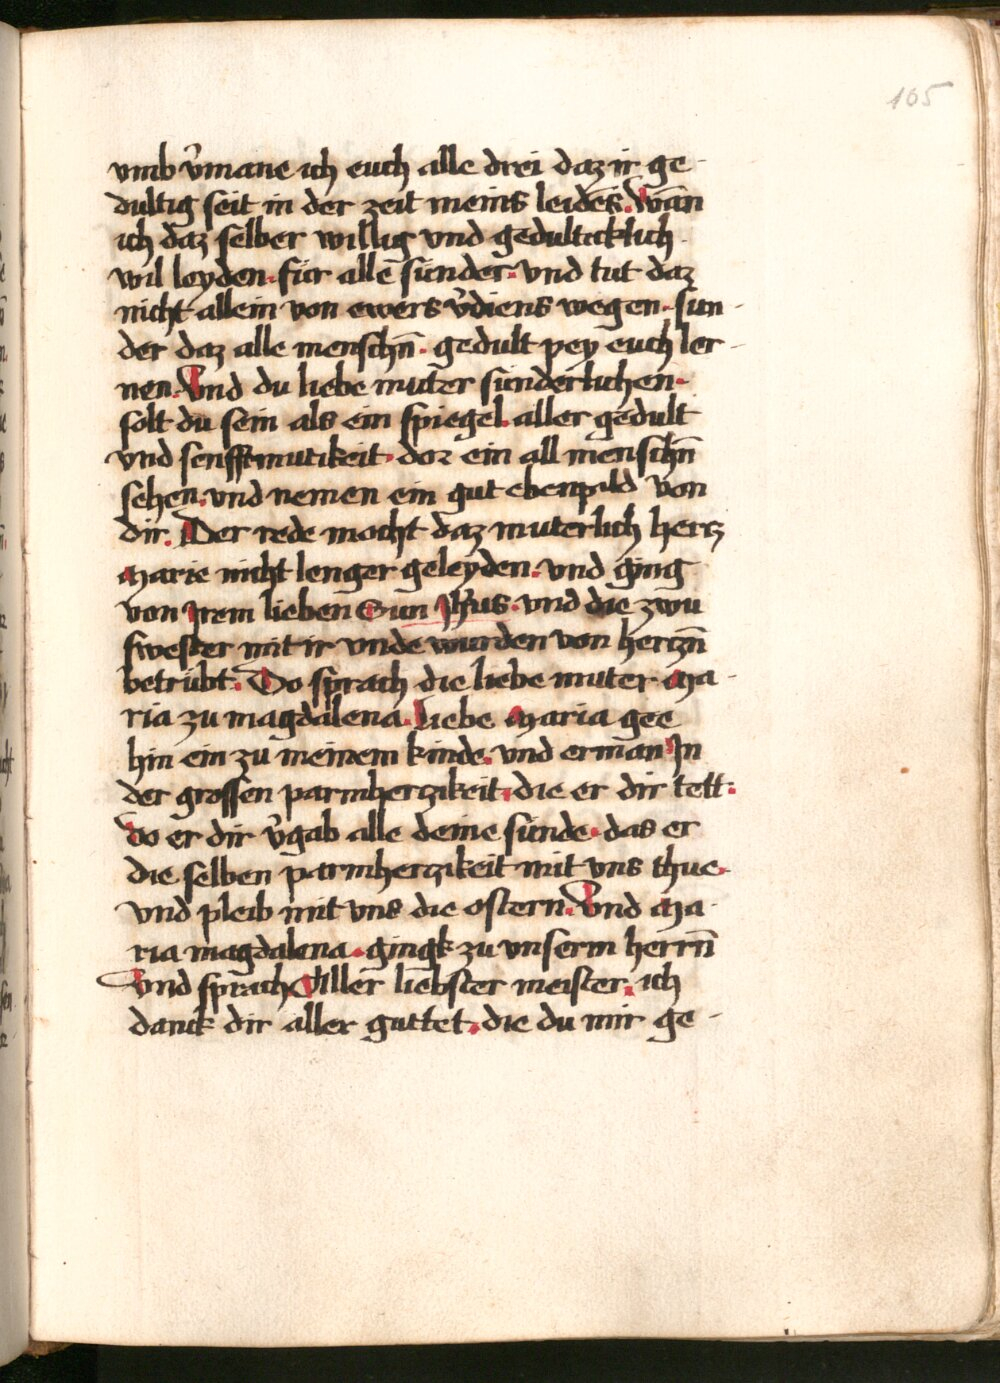 105
vmb v̉mane ich euch alle drei daz ir ge-
dultig seit in der zeit meins leidēs. Wān
ich daz selber willig vnd gedulticklich
wil leyden. für alle sünder. vnd tut daz
nicht allein von ewers v̉diens wegen. sun-
der daz alle menschn̄. gedult pey euch ler-
nen. Vnd du liebe muter sunderlichen.
solt du sein als ein spiegel aller gedult
vnd senfftmutikeit. dor ein all menschn̄
sehen. vnd nemen ein gut ebenpild von
dir. Der rede mocht daz muterlich hertz
Marie nicht lenger geleyden. vnd ging
von Irem lieben Sun Jh̄us. vnd die zwu
swester mit ir vnde wurden von hertzn̄
betrübt. Do sprach die liebe muter Ma-
ria zu magdalena. liebe Maria gee
hin ein zu meinem kinde. vnd erman In
der grossen parmhertzikeit. die er dir tett.
do er dir v̉gab alle deine sünde. das er
die selben parmhertzikeit mit vns thue.
vnd pleib mit vns die ostern. Vnd Ma-
ria magdalena. gingk zu vnserm herrn̄
Vnd sprach Aller liebster meister. ich
danck dir aller guttet. die du mir ge-